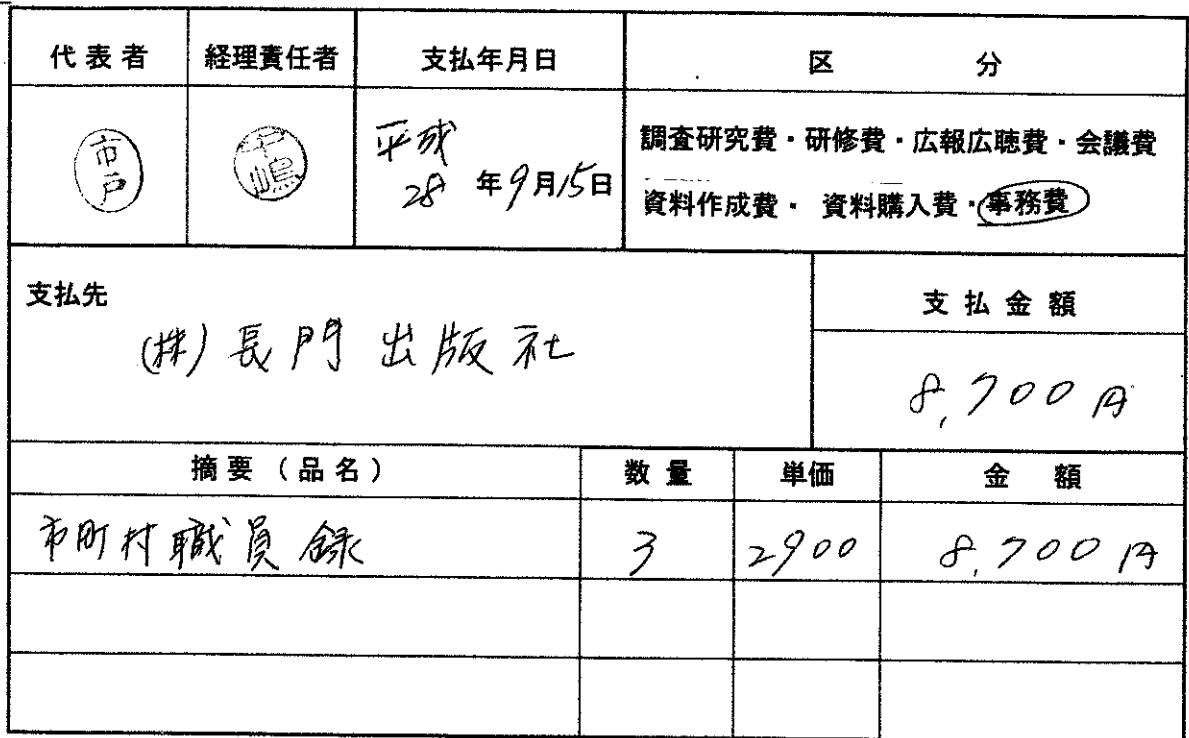 代表者 経理責任者 支払年月日 区分
市戸
平成28年9月15日
調査研究費・研修費・広報広聴費・会議費
資料作成費・資料購入費・事務費
支払先 支払金額
(株)長門出版社
8,700円
摘要(品名) 数量 単価 金額
市町村職員録 3 2900 8,700円